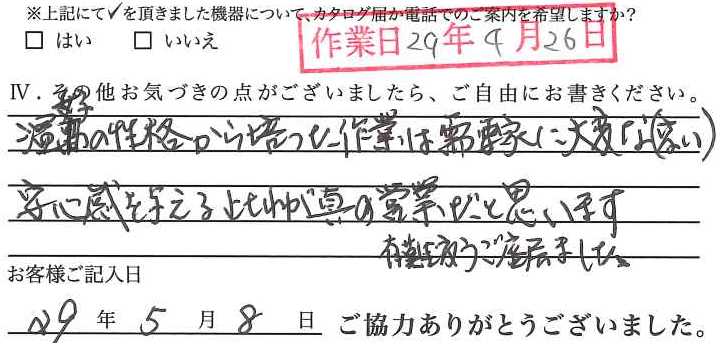 ※上記にて✓を頂きました機器について、カタログ届か電話でのご案内を希望しますか？
□ はい □ いいえ
作業日29年4月26日
Ⅳ．その他お気づきの点がございましたら、ご自由にお書きください。
の性格から培った作業は需要家に大変な(良い)
安心感を与える と思います
有難うご座居ました。
お客様ご記入日
29年5月8日 ご協力ありがとうございました。